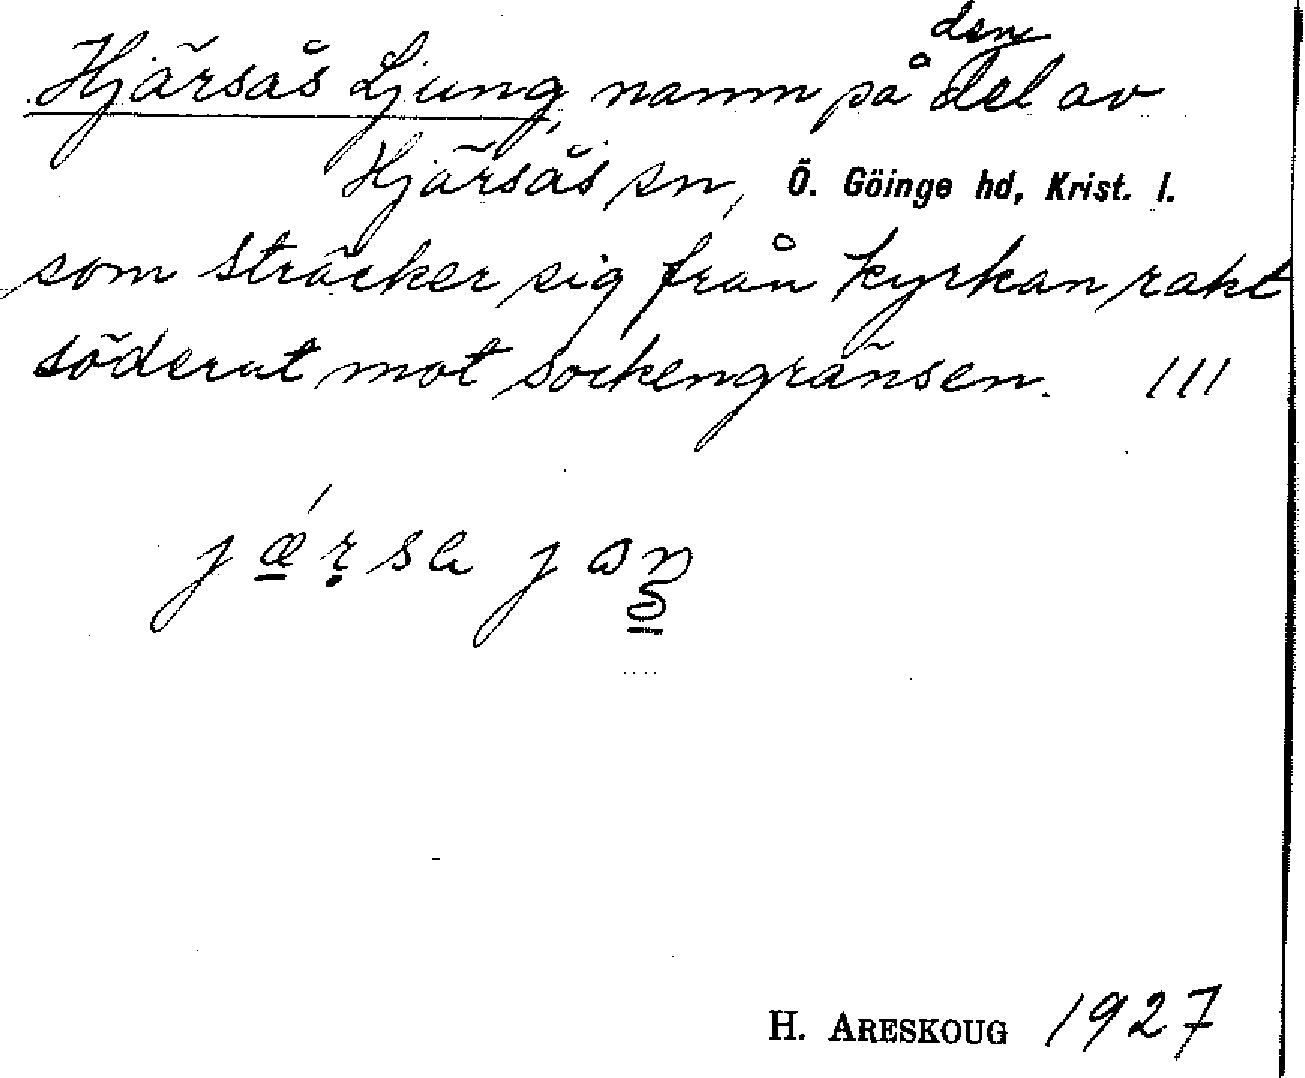 Hjärsås Ljung, namn på den del av
Hjärsås sn, Ö. Göinge hd, Krist. l.
som sträcker sig från kyrkan rakt
söderut mot sockengränsen. 111
H. ARESKOUG 1927